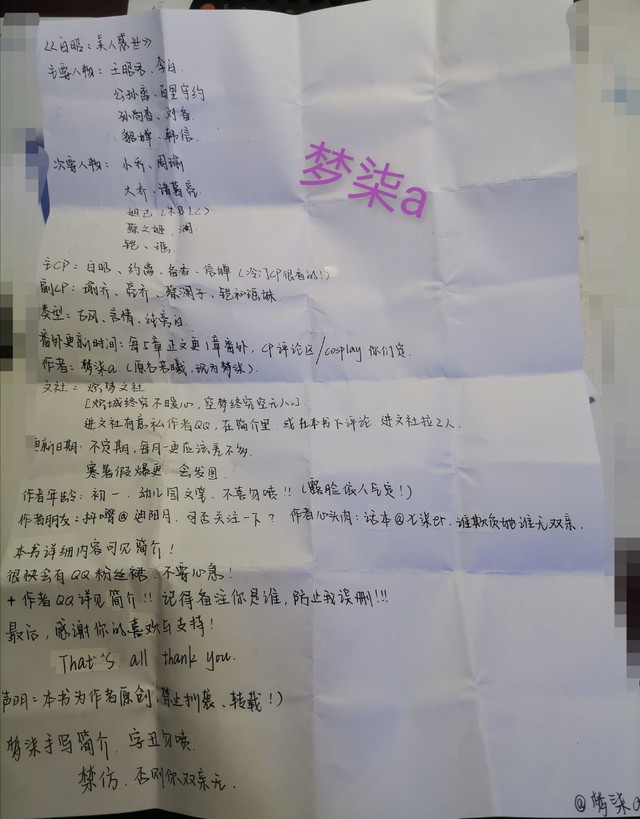 《白昭：美人惑世》
主要人物：王昭君、李白
公孙离、百里守约
孙尚香、刘备
貂蝉、韩信
梦柒a
次要人物：小乔、周瑜
大乔、诸葛亮
妲己
蔡文姬、澜
铠、瑶
主CP：白昭、约离、备香、信蝉（冷门CP很香的！）
副CP：瑜乔、亮乔、蔡澜子、铠和瑶妹
类型：古风、言情、纯亮白
番外更新时间：每5章正文更1章番外，CP评论区/cosplay 你们定.
作者：梦柒a（原名若曦，现为梦柒）.
文社：炽梦文社
[炽城终究不暖心，空梦终究空无人。]
进文社有意私作者QQ，在简介里 或在本书下评论 进文社拉2人.
更新日期：不定期，每月一更应该差不多.
寒暑假爆更 会发图.
作者年龄：初一、幼儿园文笔，不喜勿喷！！（露脸依人气定！）
作者朋友：抖嘴@迪阳月，可否关注一下？ 作者心头肉：话本@七柒er. 谁欺负她谁无双亲.
本书详细内容可见简介！
很快会有QQ粉丝裙，不要心急！
+作者QQ详见简介！！记得备注你是谁，防止我误删!!!
最后，感谢你的喜欢与支持！
That's all thank you.
声明：本书为作者原创，禁止抄袭、转载！）
梦柒手写简介，字丑勿喷.
禁仿，否则你双亲无.
@梦柒a